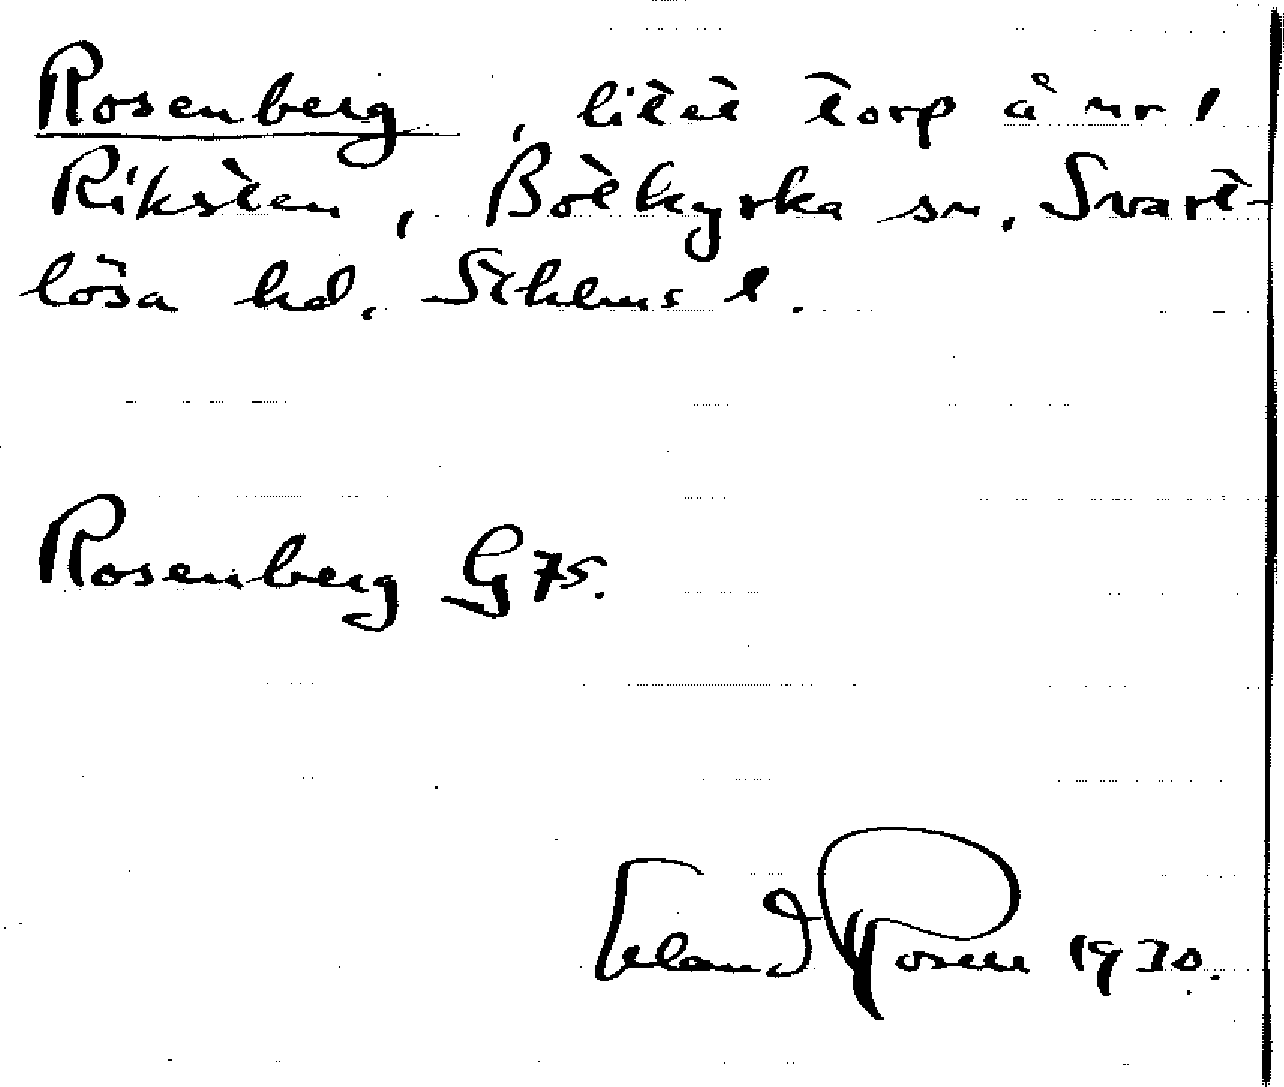 Rosenberg, litet torp å nr 1
Riksten, Botkyrka sn. Svart-
lösa hd. Sthlms l.
Rosenberg G 75.
Erland Rosell 1930.